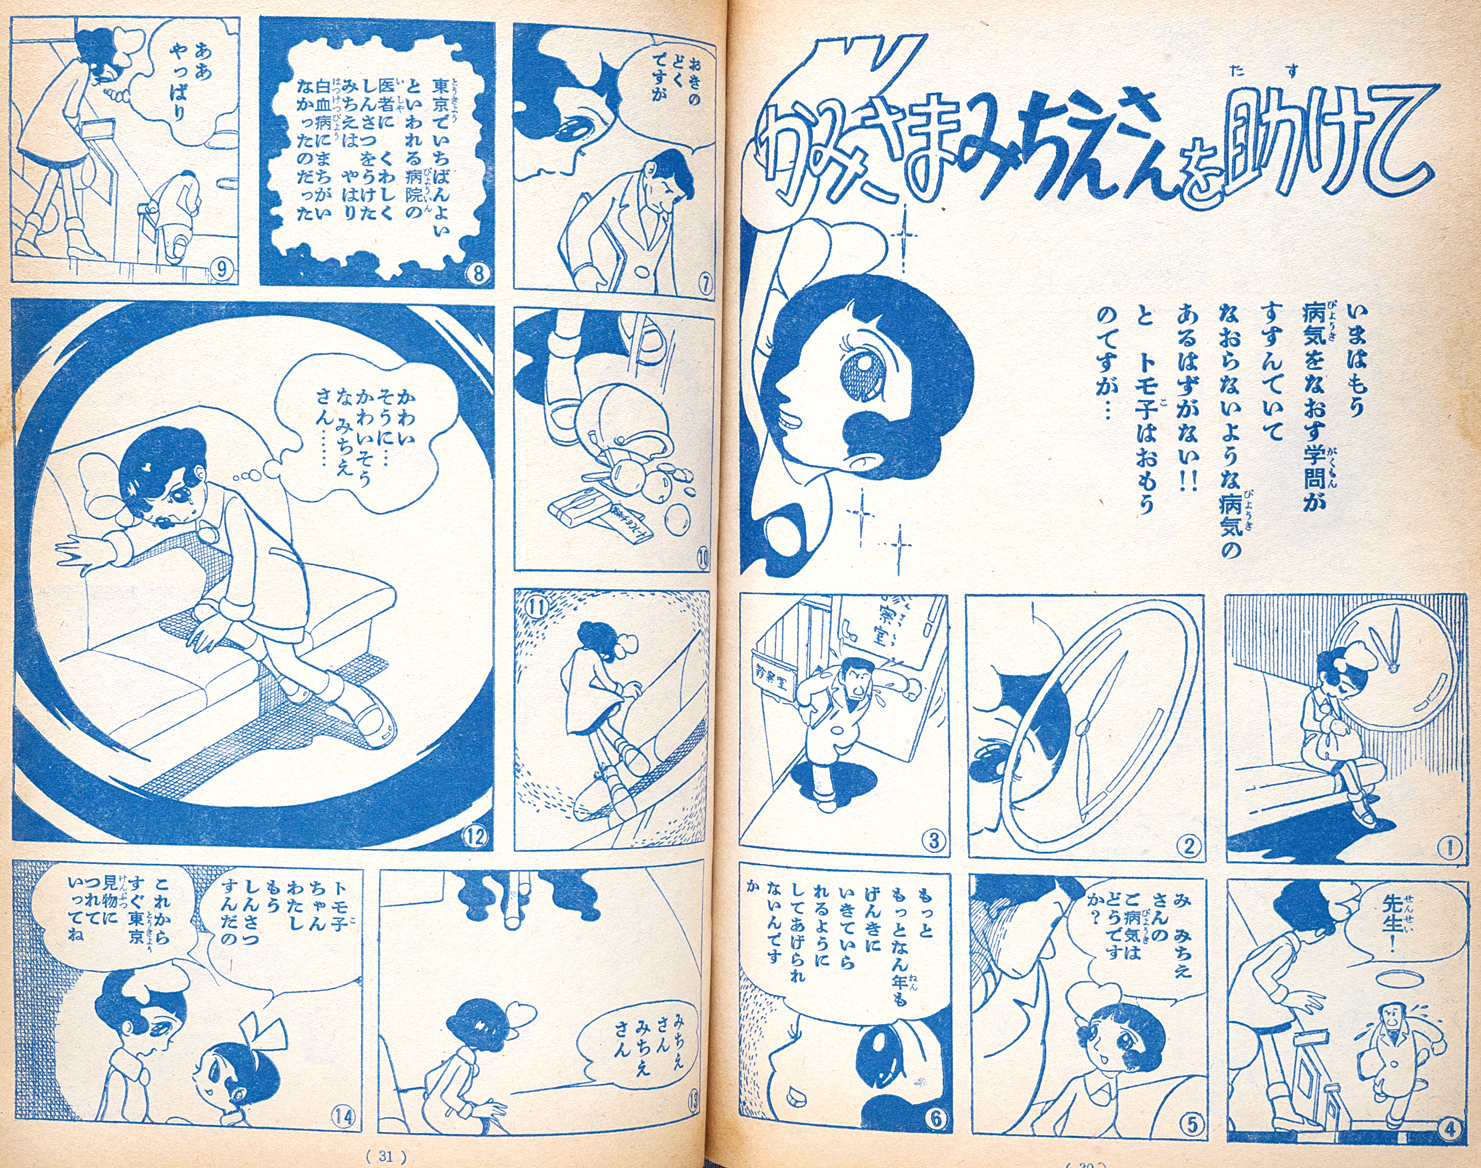 かみさまみちえさんを助けて
たす
いまはもう
病気をなおす学問が
びょうき
がくもん
すすんでいて
なおらないような病気の
びょうき
あるはずがない!!
と トモ子はおもう
こ
のですが…
1
2
診察室
3
先生!
せんせい
4
み みちえ
さんの
ご病気は
びょうき
どうです
か?
5
もっと
もっとなん年も
ねん
げんきに
いきていら
れるように
してあげられ
ないんです
か
6
おきの
どく
ですが
7
東京でいちばんよい
とうきょう
といわれる病院の
びょういん
医者に くわしく
いしゃ
しんさつをうけた
みちえは やはり
白血病にまちがい
はっけつびょう
なかったのだった
8
ああ
やっぱり
9
10
11
かわい
そうに…
かわいそう
な みちえ
さん……
12
みちえ
さん
みちえ
さん
13
トモ子
こ
ちゃん
わたし
もう
しんさつ
すんだの
これから
すぐ東京
とうきょう
見物に
けんぶつ
つれて
いってね
14
(31)